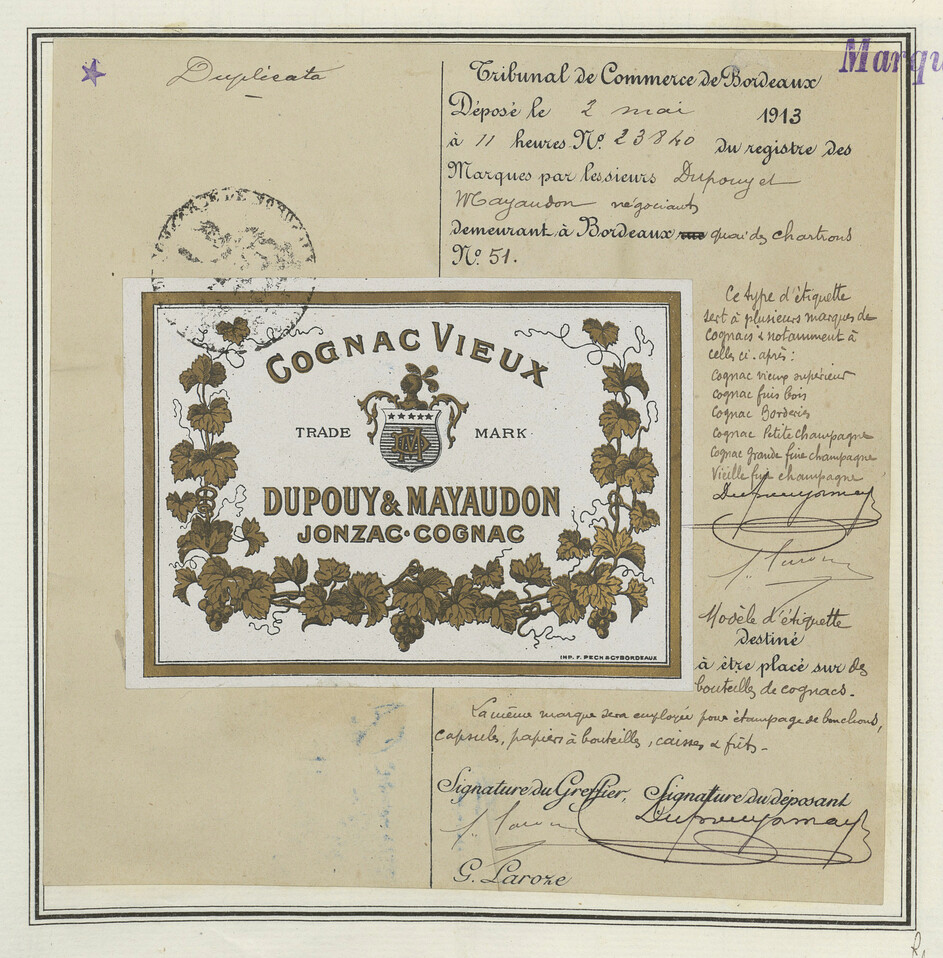 Duplicata
Marqu
Tribunal de Commerce de Bordeaux
Déposé le 2 mai 1913
à 11 heures N° 23840 du registre des
Marques par les sieurs Dupouy et
Mayaudon négociants
demeurant à Bordeaux rue quai des chartrons
N° 51.
Ce type d'étiquette
sert à plusieurs marques de
cognacs & notamment à
celles ci-après :
Cognac vieux supérieur
Cognac fins bois
Cognac Borderies
Cognac Petite Champagne
Cognac grande fine champagne
Vieille fine champagne
COGNAC VIEUX
TRADE MARK
DUPOUY & MAYAUDON
JONZAC·COGNAC
IMP. F. PECH & Cie BORDEAUX
Modèle d'étiquette
destiné
à être placé sur des
bouteilles de cognacs.
La même marque sera employée pour étampage de bouchons,
capsules, papiers à bouteilles, caisses & fûts.
Signature du Greffier, Signature du déposant
G. Laroze